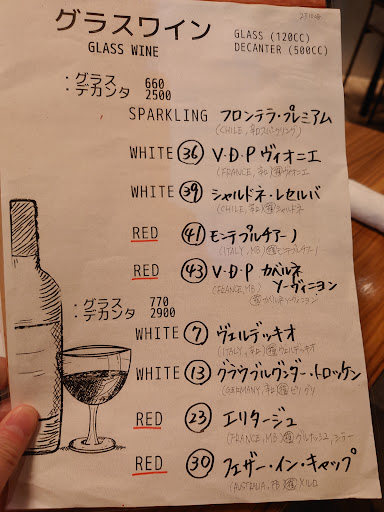 グラスワイン
GLASS WINE
GLASS (120CC)
DECANTER (500CC)
・グラス 660
・デカンタ 2500
SPARKLING フロンテラ・プレミアム
(CHILE, 辛口スパークリング)
WHITE 36 V・D・P ヴィオニエ
(FRANCE, 辛口) ヴィオニエ
WHITE 39 シャルドネ・レセルバ
(CHILE, 辛口) シャルドネ
RED 41 モンテプルチアーノ
(ITALY, MB) モンテプルチアーノ
RED 43 V・D・P カベルネ
ソーヴィニヨン
(FRANCE, MB)
カベルネソーヴィニヨン
・グラス 770
・デカンタ 2900
WHITE 7 ヴェルデッキオ
(ITALY, 辛口) ヴェルデッキオ
WHITE 13 グラウブルグンダー・トロッケン
(GERMANY, 辛口) ピノグリ
RED 23 エリタージュ
(FRANCE, MB) グルナッシュ, シラー
RED 30 フェザー・イン・キャップ
(AUSTRALIA, FB)